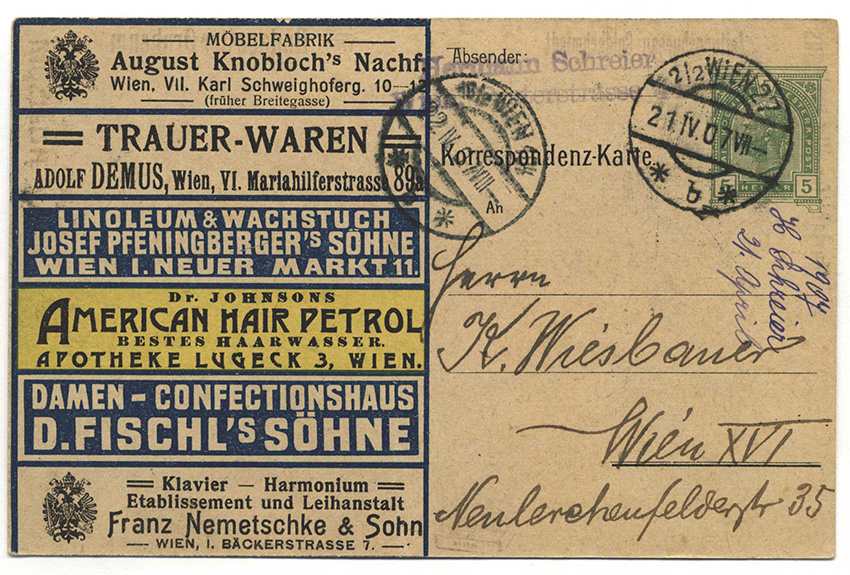 MÖBELFABRIK
August Knobloch's Nachf.
Wien, VII. Karl Schweighoferg. 10-12
(früher Breitegasse)
TRAUER-WAREN
ADOLF DEMUS, Wien, VI. Mariahilferstrasse 89a
LINOLEUM & WACHSTUCH
JOSEF PFENINGBERGER'S SÖHNE
WIEN I. NEUER MARKT 11.
Dr. JOHNSONS
AMERICAN HAIR PETROL
BESTES HAARWASSER.
APOTHEKE LUGECK 3, WIEN.
DAMEN-CONFECTIONSHAUS
D. FISCHL'S SÖHNE
Klavier - Harmonium
Etablissement und Leihanstalt
Franz Nemetschke & Sohn
WIEN, I. BÄCKERSTRASSE 7.
Absender:
Hermann Schreier
Korrespondenz-Karte.
2/2 WIEN 27
21.IV.07 VII-
* b *
WIEN
An
HELLER 5
1907
H Schreier
21. April
Herrn
K. Wiesbauer
Wien XVI
Neulerchenfelderstr 35